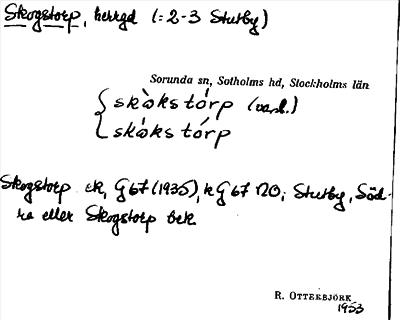 Skogstorp, herrgd (=2-3 Stutby)
Sorunda sn, Sotholms hd, Stockholms län
skò̀ks tórp (vanl.)
skò̀ks tórp
Skogstorp ek, G 67 (1935), k G 67 NO; Stutby, Söd-
ra eller Skogstorp bek
R. OTTERBJÖRK
1953